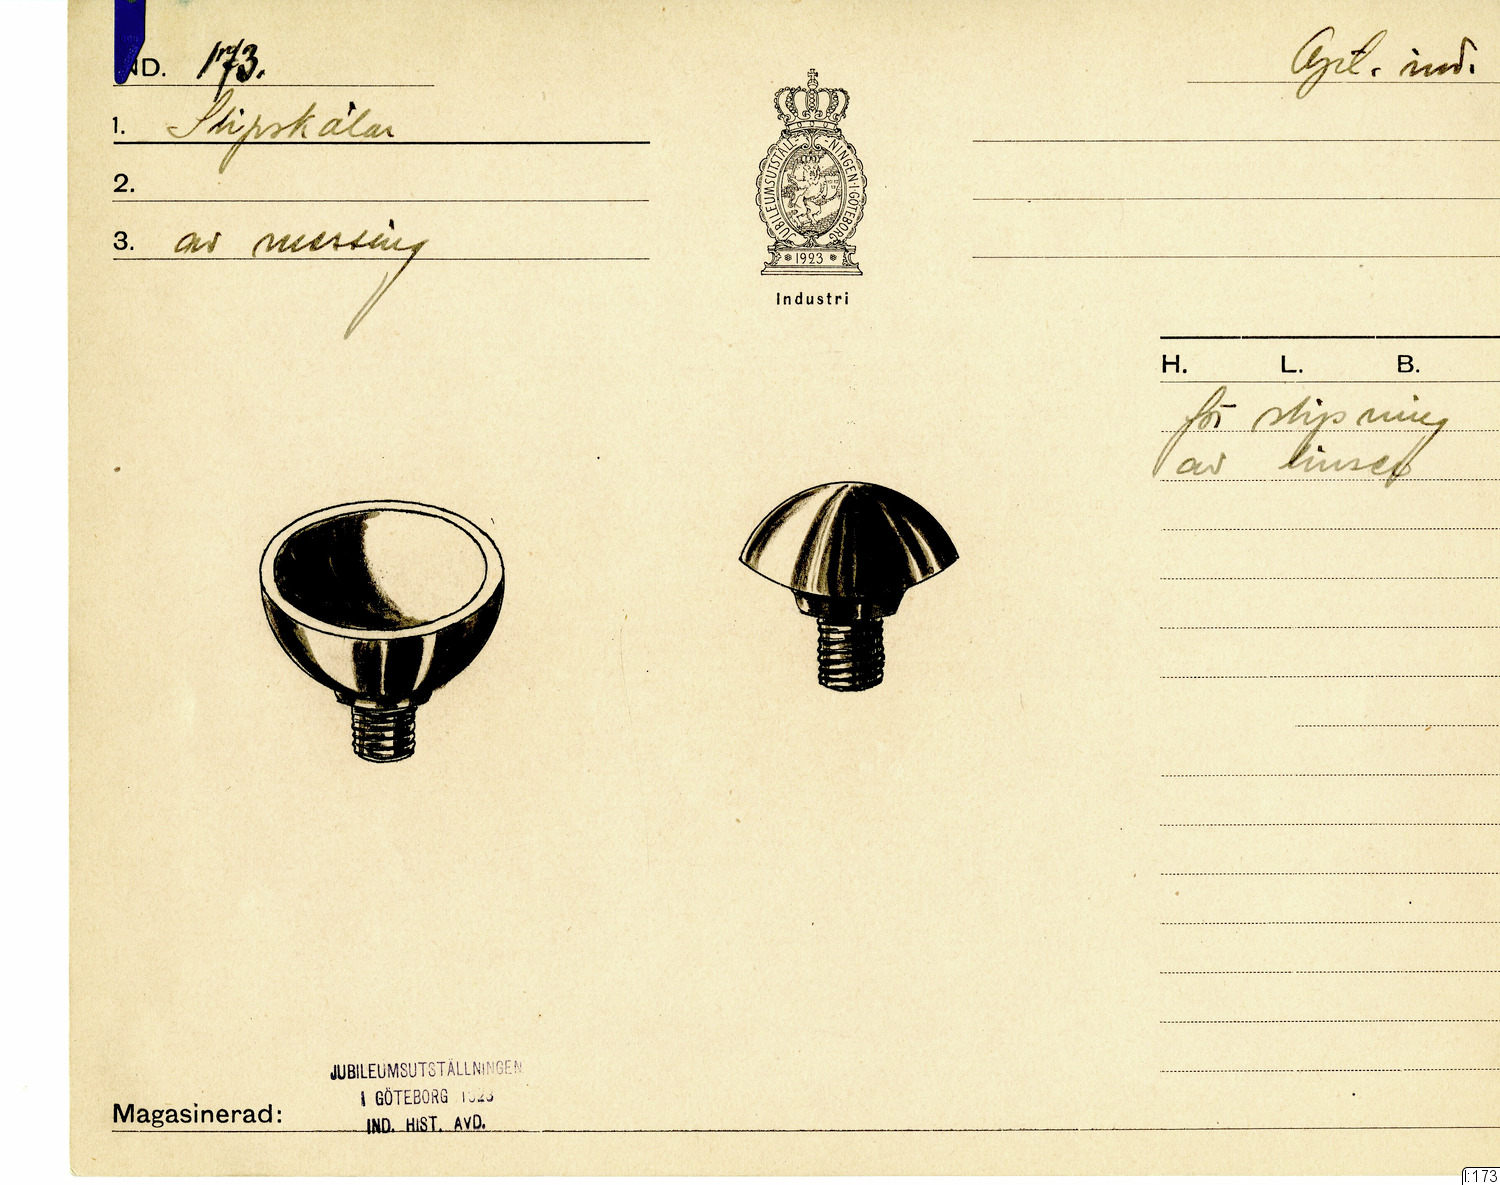 IND. 173.
Opt. ind.
1. Slipskålar
2.
3. av messing
JUBILEUMSUTSTÄLLNINGEN I GÖTEBORG
1923
Industri
H. L. B.
för slipning
av linser
JUBILEUMSUTSTÄLLNINGEN
I GÖTEBORG 1923
IND. HIST. AVD.
Magasinerad:
I:173